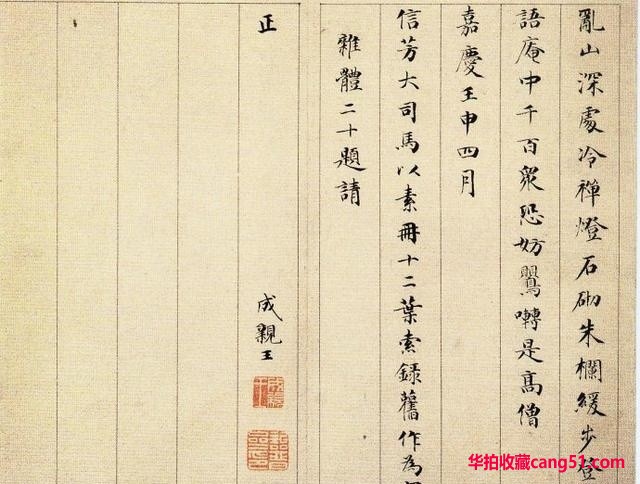 亂山深處冷禪燈石砌朱欄緩步登
語庵中千百眾恐妨鸎囀是高僧
嘉慶壬申四月
信芳大司馬以素冊十二葉索錄舊作為
雜體二十題請
正
成親王
华拍收藏cang51.com